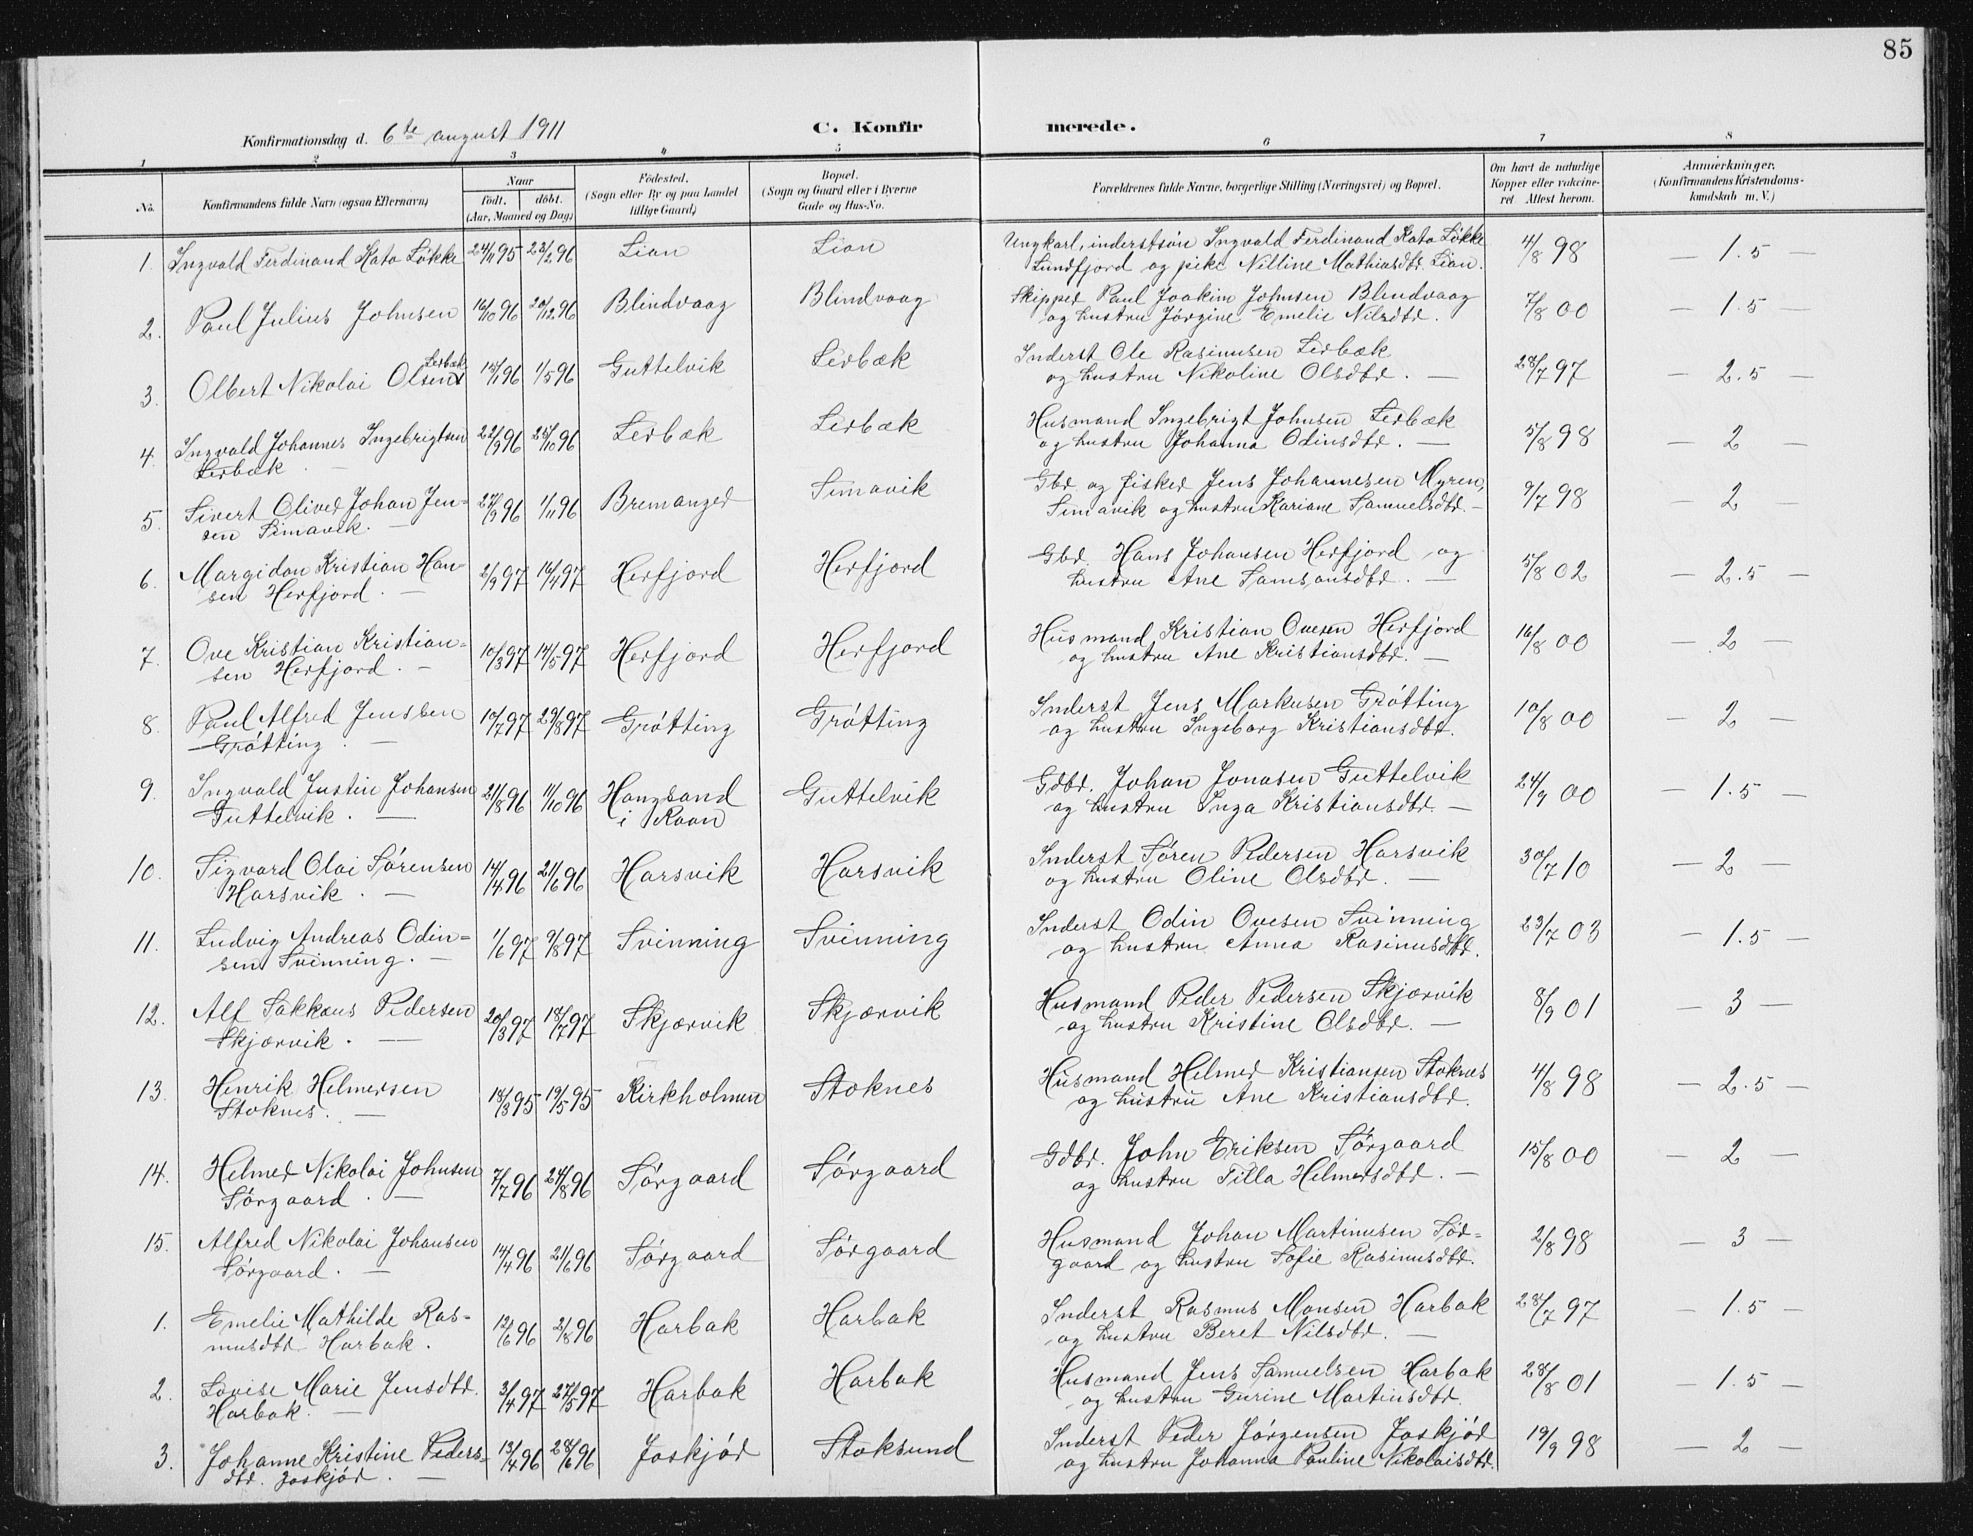 85
Konfirmationsdag d. 6te august 1911
C. Konfirmerede.
1 2 3 4 5 6 7 8
No. Konfirmandens fulde Navn (ogsaa Efternavn) Naar født. døbt. (Aar, Maaned og Dag) Fødested. (Sogn eller By og paa Landet tillige Gaard) Bopæl. (Sogn og Gaard eller i Byerne Gade og Hus-No. Forældrenes fulde Navne, borgerlige Stilling (Næringsvei) og Bopæl. Om havt de naturlige Kopper eller vakcineret Attest herom. Anmærkninger. (Konfirmandens Kristendomskundskab m. V.)
1 Ingvald Ferdinand Kato Løkke 24/11 95 23/2 96 Lian Lian Ungkarl, inderstsøn Ingvald Ferdinand Kato Løkke 4/8 98 — 1.5 —
Lundfjord og pike Nilline Mathiasdtr. Lian.
2. Paul Julius Johnsen 16/10 96 20/12 96 Blindvaag Blindvaag Skipper Paul Joakim Johnsen Blindvaag 7/8 00 — 1.5 —
og hustru Jørgine Emelie Nilsdtr.
3. Olbert Nikolai Olsen Lerbæk 13/1 96 1/5 96 Guttelvik Lerbæk Inderst Ole Rasmusen Lerbæk 28/7 97 — 2.5 —
og hustru Nikoline Olsdtr. —
4. Ingvald Johannes Ingebrigtsen 22/9 96 25/10 96 Lerbæk Lerbæk Husmand Ingebrigt Johnsen Lerbæk 5/8 98 — 2 —
Lerbæk — og hustru Johanna Odinsdtr. —
5. Sivert Oliver Johan Jen- 27/9 96 1/11 96 Bremanger Simavik Gbr. og fisker Jens Johannesen Myren, 9/7 98 — 2 —
sen Simavik. — Simavik og hustru Kariane Samuelsdtr. —
6. Margidon Kristian Han- 2/2 97 16/4 97 Herfjord Herfjord Gbr. Hans Johansen Herfjord og 5/8 02 — 2.5 —
sen Herfjord. — hustru Ane Samsonsdtr. —
7. Ove Kristian Kristian- 10/3 97 14/5 97 Herfjord Herfjord Husmand Kristian Ovesen Herfjord 16/8 00 — 2 —
sen Herfjord. — og hustru Ane Kristiansdtr. —
8. Paul Alfred Jenssen 10/7 97 29/8 97 Grøtting Grøtting Inderst Jens Markusen Grøtting 10/8 00 — 2 —
Grøtting. — og hustru Ingeborg Kristiansdtr.
9. Ingvald Justin Johansen 21/8 96 11/10 96 Hongsand Guttelvik Gdbr. Johan Jonasen Guttelvik 24/9 00 — 1.5 —
Guttelvik. — i Roan og hustru Inga Kristiansdtr. —
10. Sigvard Olai Sørensen 14/4 96 21/6 96 Harsvik Harsvik Inderst Søren Pedersen Harsvik 30/7 10 — 2 —
Harsvik. — og hustru Oline Olsdtr. —
11. Ludvig Andreas Odin- 1/6 97 9/8 97 Svinning Svinning Inderst Odin Ovesen Svinning 23/7 03 — 1.5 —
sen Svinning. — og hustru Anna Rasmusdtr.
12. Alf Sakkæus Pedersen 20/3 97 18/7 97 Skjærvik Skjærvik Husmand Peder Pedersen Skjærvik 8/9 01 — 3 —
Skjærvik. — og hustru Kristine Olsdtr. —
13. Henrik Helmersen 18/3 95 19/5 95 Kirkholmen Stoknes Husmand Helmer Kristiansen Stoknes 4/8 98 — 2.5 —
Stoknes. — og hustru Ane Kristiansdtr.
14. Helmer Nikolai Johnsen 7/7 96 24/8 96 Sørgaard Sørgaard Gdbr. John Eriksen Sørgaard 15/8 00 — 2 —
Sørgaard. — og hustru Tilla Helmersdtr. —
15. Alfred Nikolai Johansen 14/4 96 21/6 96 Sørgaard Sørgaard Husmand Johan Martinusen Sør- 2/8 98 — 3 —
Sørgaard. — gaard og hustru Sofie Rasmusdtr.
1. Emelie Mathilde Ras- 12/6 96 2/8 96 Harbak Harbak Inderst Rasmus Monsen Harbak 28/7 97 — 1.5 —
musdtr. Harbak. og hustru Beret Nilsdtr. —
2. Lovise Marie Jensdtr. 3/4 97 27/5 97 Harbak Harbak Husmand Jens Samuelsen Harbak 28/8 01 — 1.5 —
Harbak. — og hustru Gurine Martinsdtr.
3. Johanne Kristine Peders- 13/4 96 28/6 96 Joskjør Stoksund Inderst Peder Jørgensen Joskjør 19/9 98 — 2 —
dtr. Joskjør. — og hustru Johanna Pauline Nikolaisdtr.